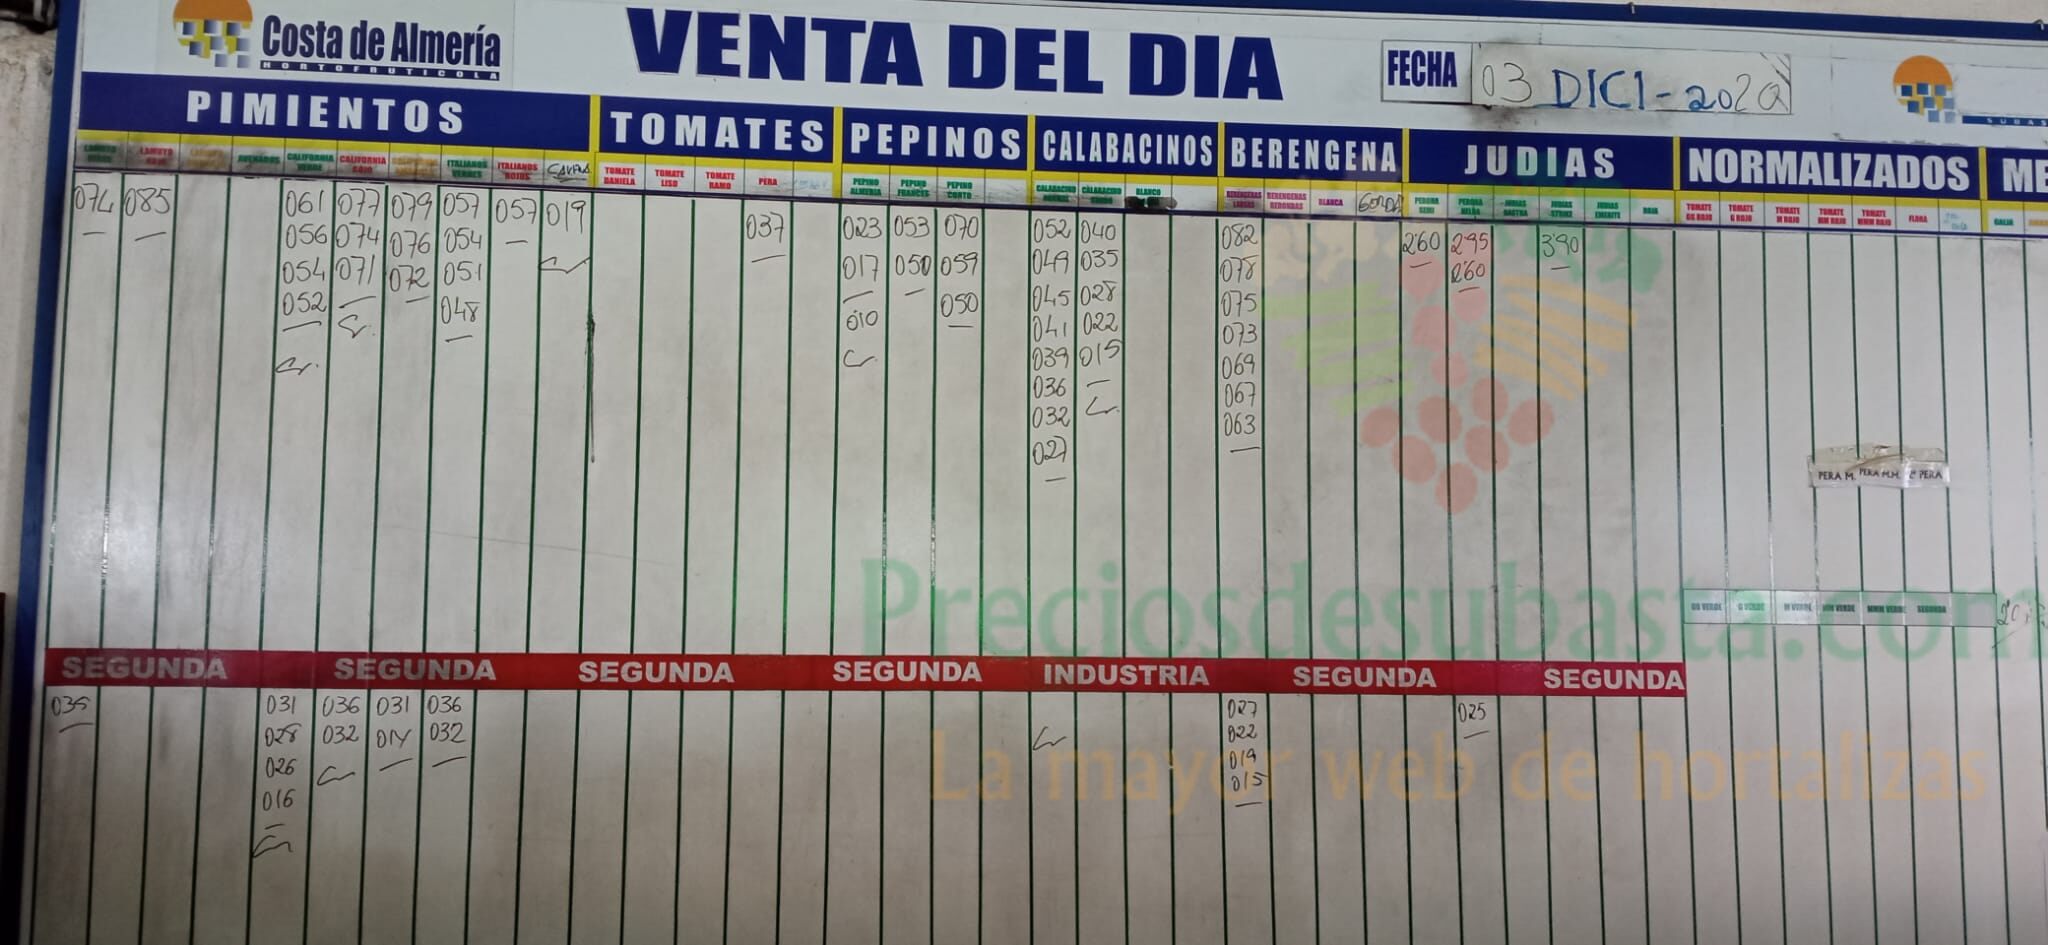 Costa de Almería
HORTOFRUTICOLA
VENTA DEL DIA
FECHA 03 DICI-2020
PIMIENTOS TOMATES PEPINOS CALABACINOS BERENGENA JUDIAS NORMALIZADOS ME
LAMUYO ROJO
CALIFORNIA VERDE
CALIFORNIA ROJO
ITALIANOS VERDES
ITALIANOS ROJOS
TOMATE DANIELA
TOMATE LISO
TOMATE RAMO
PERA
PEPINO ALMERIA
PEPINO FRANCES
PEPINO CORTO
BLANCO
BERENGENAS LARGAS
BERENGENAS REDONDAS
BLANCA
GORDA
PERONA SEMI
JUDIAS STRIKE
JUDIAS EMERITE
ROJA
TOMATE GG ROJO
TOMATE G ROJO
TOMATE M ROJO
TOMATE MM ROJO
TOMATE MMM ROJO
FLORA
GALIA
074 085 061 077 079 057 057 019 037 023 053 070 052 040 082 2'60 2'95 3'90
056 074 076 054 017 050 059 049 035 078 2'60
054 071 072 051 010 050 045 028 075
052 048 041 022 073
039 015 069
036 067
032 063
027
PERA M. PERA M.M. 2ª PERA
GG VERDE G VERDE M VERDE MM VERDE MMM VERDE SEGUNDA
Preciosdesubasta.com
SEGUNDA SEGUNDA SEGUNDA SEGUNDA INDUSTRIA SEGUNDA SEGUNDA
031 036 031 036 027 025
028 032 032 022
026 019
016 015
La mayor web de hortalizas